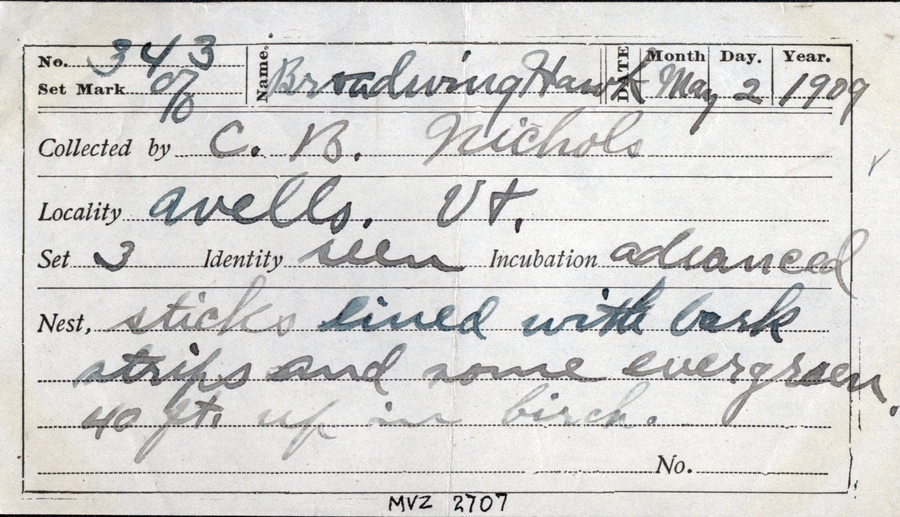 No. 343 Name. Broadwing Hawk DATE Month May Day. 2 Year. 1909
Set Mark
Collected by C. B. Nichols
Locality avells. Vt.
Set 3 Identity seen Incubation advanced
Nest, sticks lined with bark
strips and some evergreen.
40 ft. up in birch.
No.
MVZ 2707